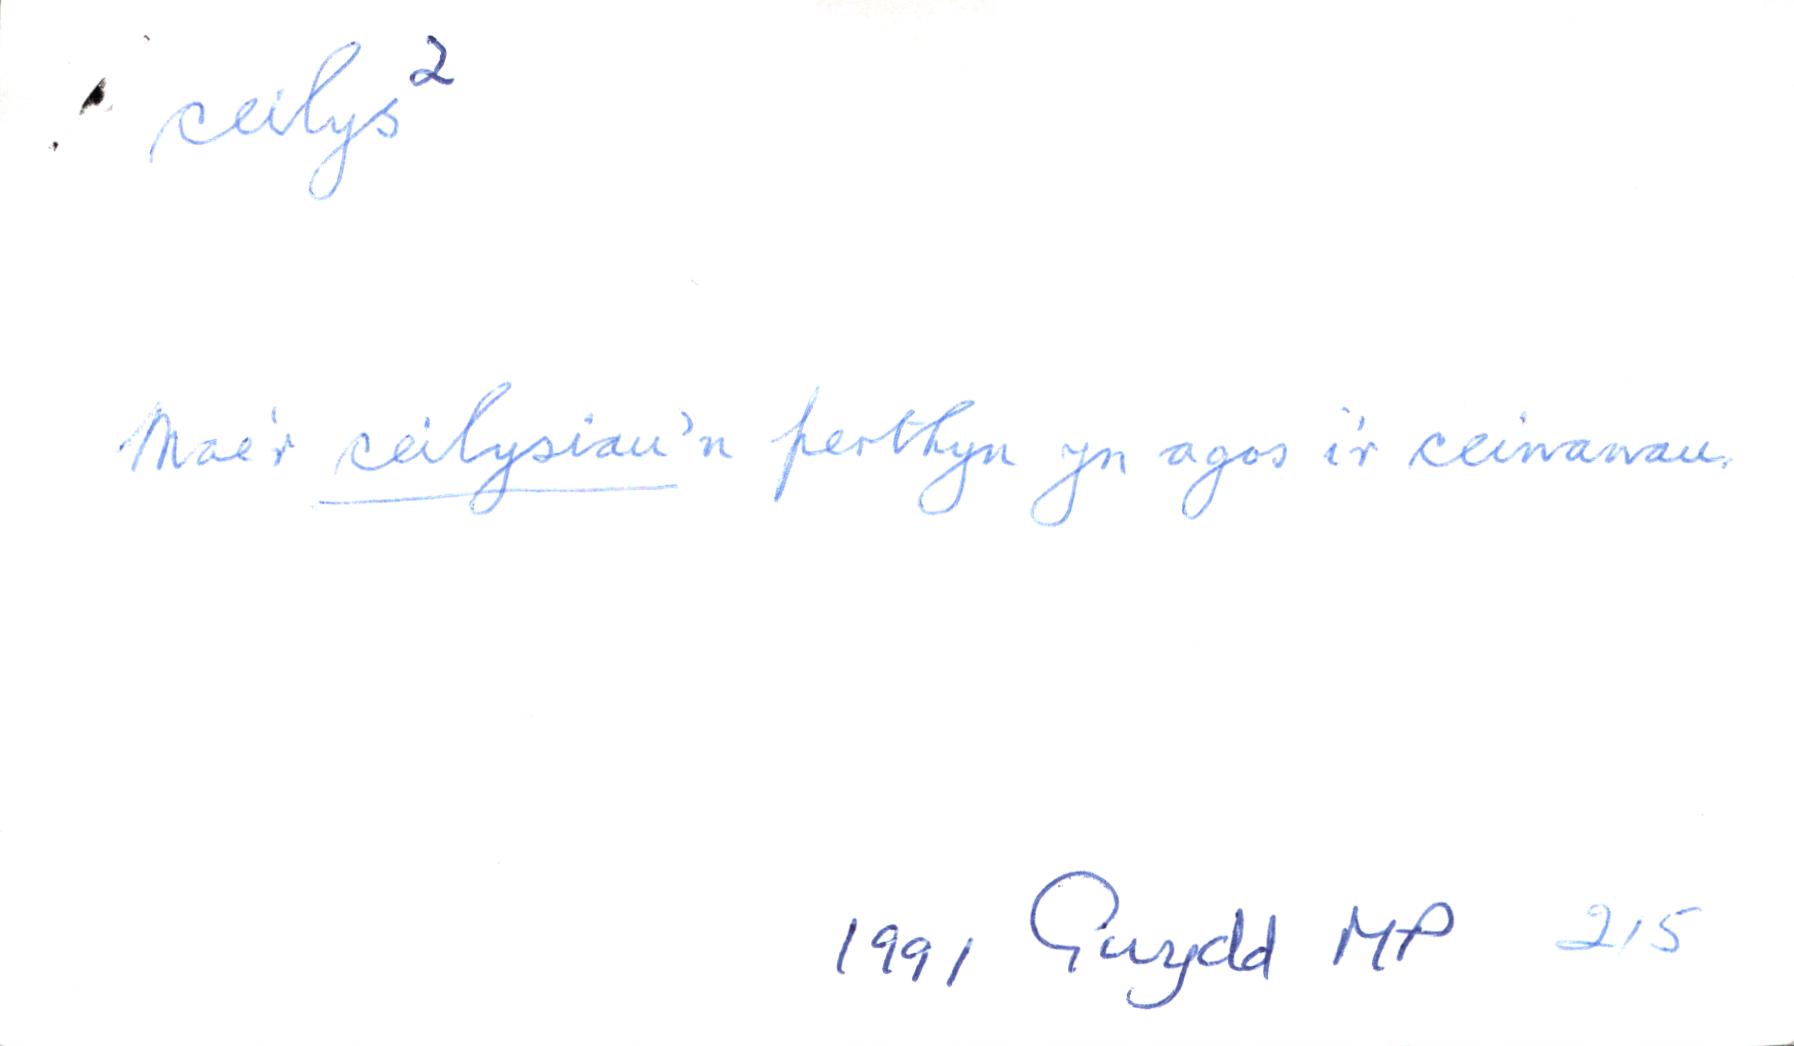 ceilys²
Mae'r ceilysiau'n perthyn yn agos i'r ceinanau.
1991 Gwydd MP 215